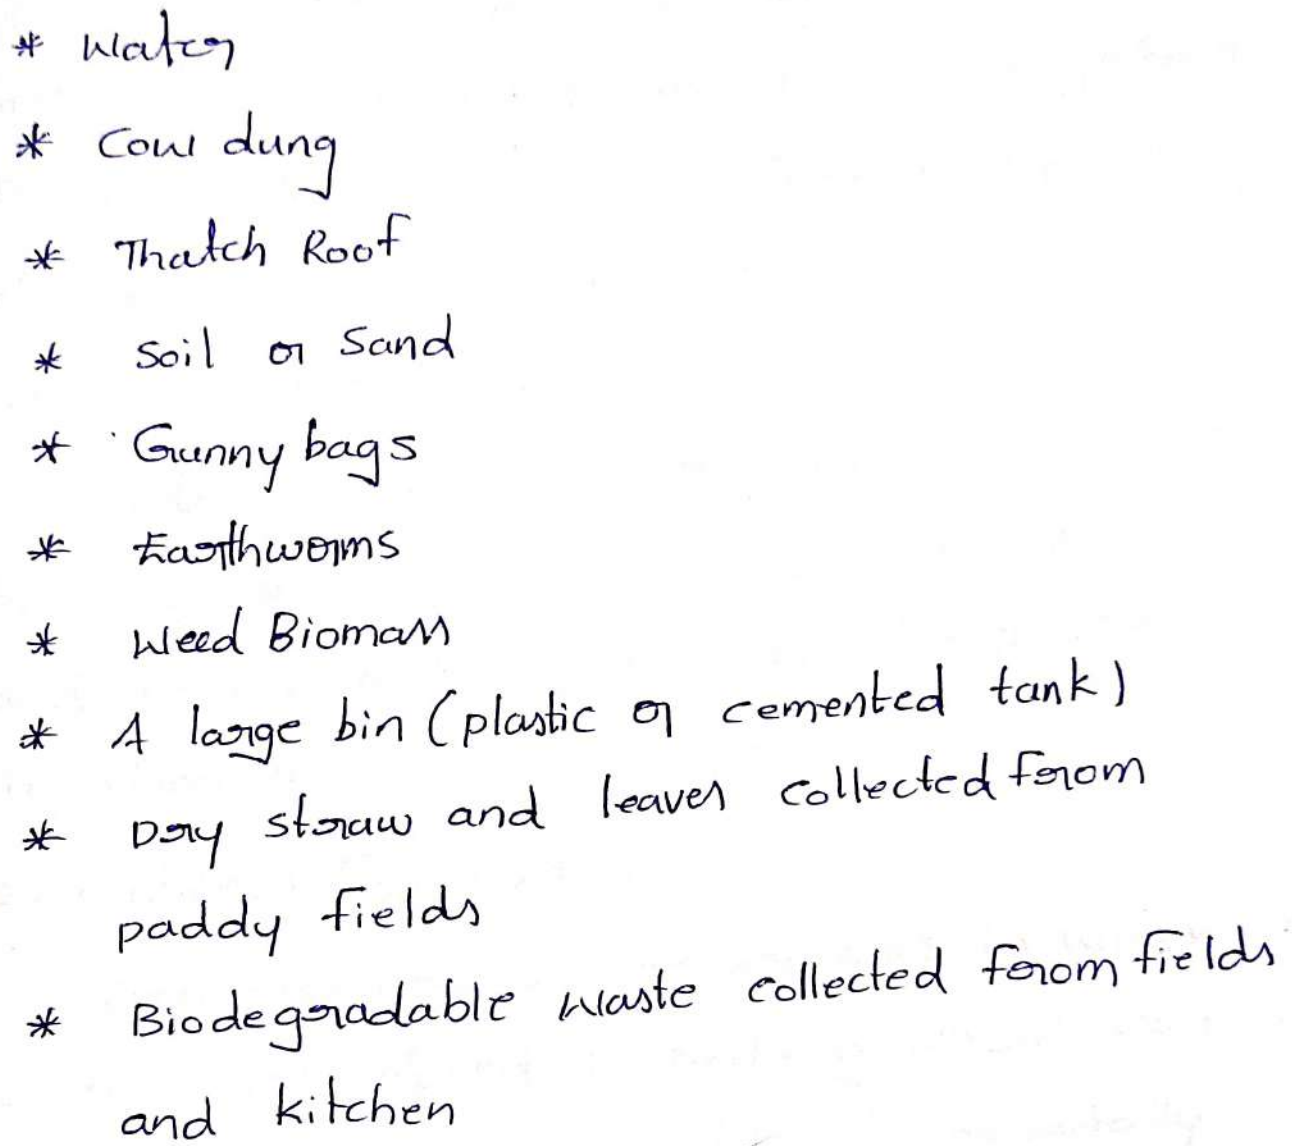 * Water
* Cow dung
* Thatch Roof
* Soil or Sand
* Gunny bags
* Earthworms
* Weed Biomass
* A large bin (plastic or cemented tank)
* Dry straw and leaves collected from
paddy fields
* Biodegradable waste collected from fields
and kitchen